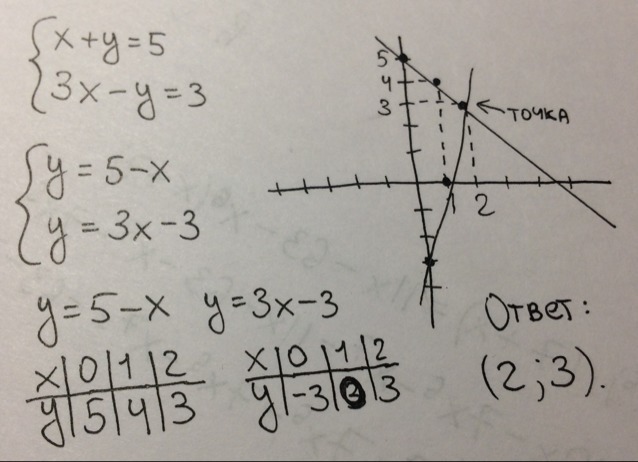 x+y=5
3x-y=3
y=5-x
y=3x-3
y=5-x y=3x-3
x|0|1|2
y|5|4|3
x|0|1|2
y|-3| |3
5
4
3
точка
1 2
Ответ:
(2;3).